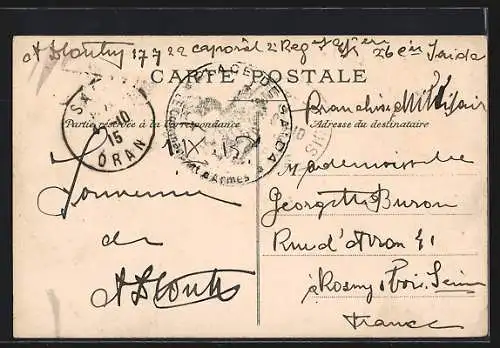 17722 caporal 2e Reg 26e Cie Saida
CARTE POSTALE
SAIDA
10
15
ORAN
PLACE DE SAIDA
Commandement d'Armes
Franchise Militaire
Partie réservée à la correspondance
Adresse du destinataire
Souvenir
de
Mademoiselle
Georgette Buron
Rue d'Avron 41
à Rosny s/ Bois. Seine
France